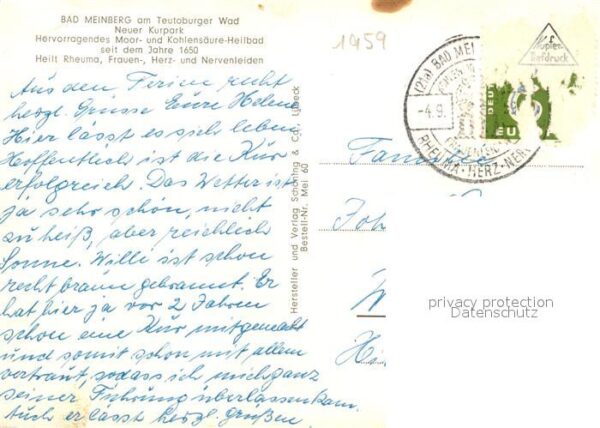 BAD MEINBERG am Teutoburger Wad
Neuer Kurpark
Hervorragendes Moor- und Kohlensäure-Heilbad
seit dem Jahre 1650
Heilt Rheuma, Frauen-, Herz- und Nervenleiden
1959
Kupfer-
tiefdruck
(21a) BAD MEI
-4.9.
RHEUMA-HERZ-NERV
DEUT
EU
Aus den Ferien recht
herzl. Grüsse Eure Helene
Hier lässt es sich leben
Hoffentlich ist die Kur
erfolgreich. Das Wetter ist
ja sehr schön, nicht
zu heiß, aber reichlich
Sonne. Willi ist schon
recht braun gebrannt. Er
hat hier ja vor 2 Jahren
schon eine Kur mitgemacht
und somit schon mit allem
vertraut, sodass ich mich ganz
seiner Führung überlassen kann.
Auch er lässt herzl. grüßen.
Hersteller und Verlag Schöning & Co., Lübeck
Bestell-Nr. Mei 60
Familie
Joh
W
Hei
privacy protection
Datenschutz